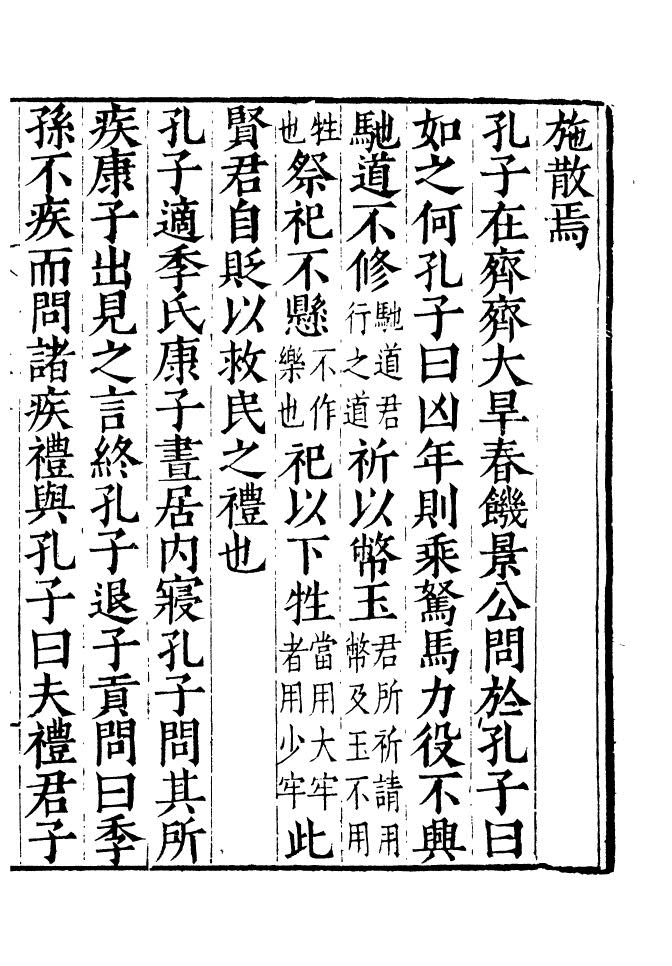 施散焉
孔子在齊齊大旱春饑景公問於孔子曰
如之何孔子曰凶年則乘駑馬力役不興
馳道不修馳道君行之道祈以幣玉君所祈請用幣及玉不用
牲也祭祀不懸不作樂也祀以下牲當用大牢者用少牢此
賢君自貶以救民之禮也
孔子適季氏康子晝居内寢孔子問其所
疾康子出見之言終孔子退子貢問曰季
孫不疾而問諸疾禮與孔子曰夫禮君子